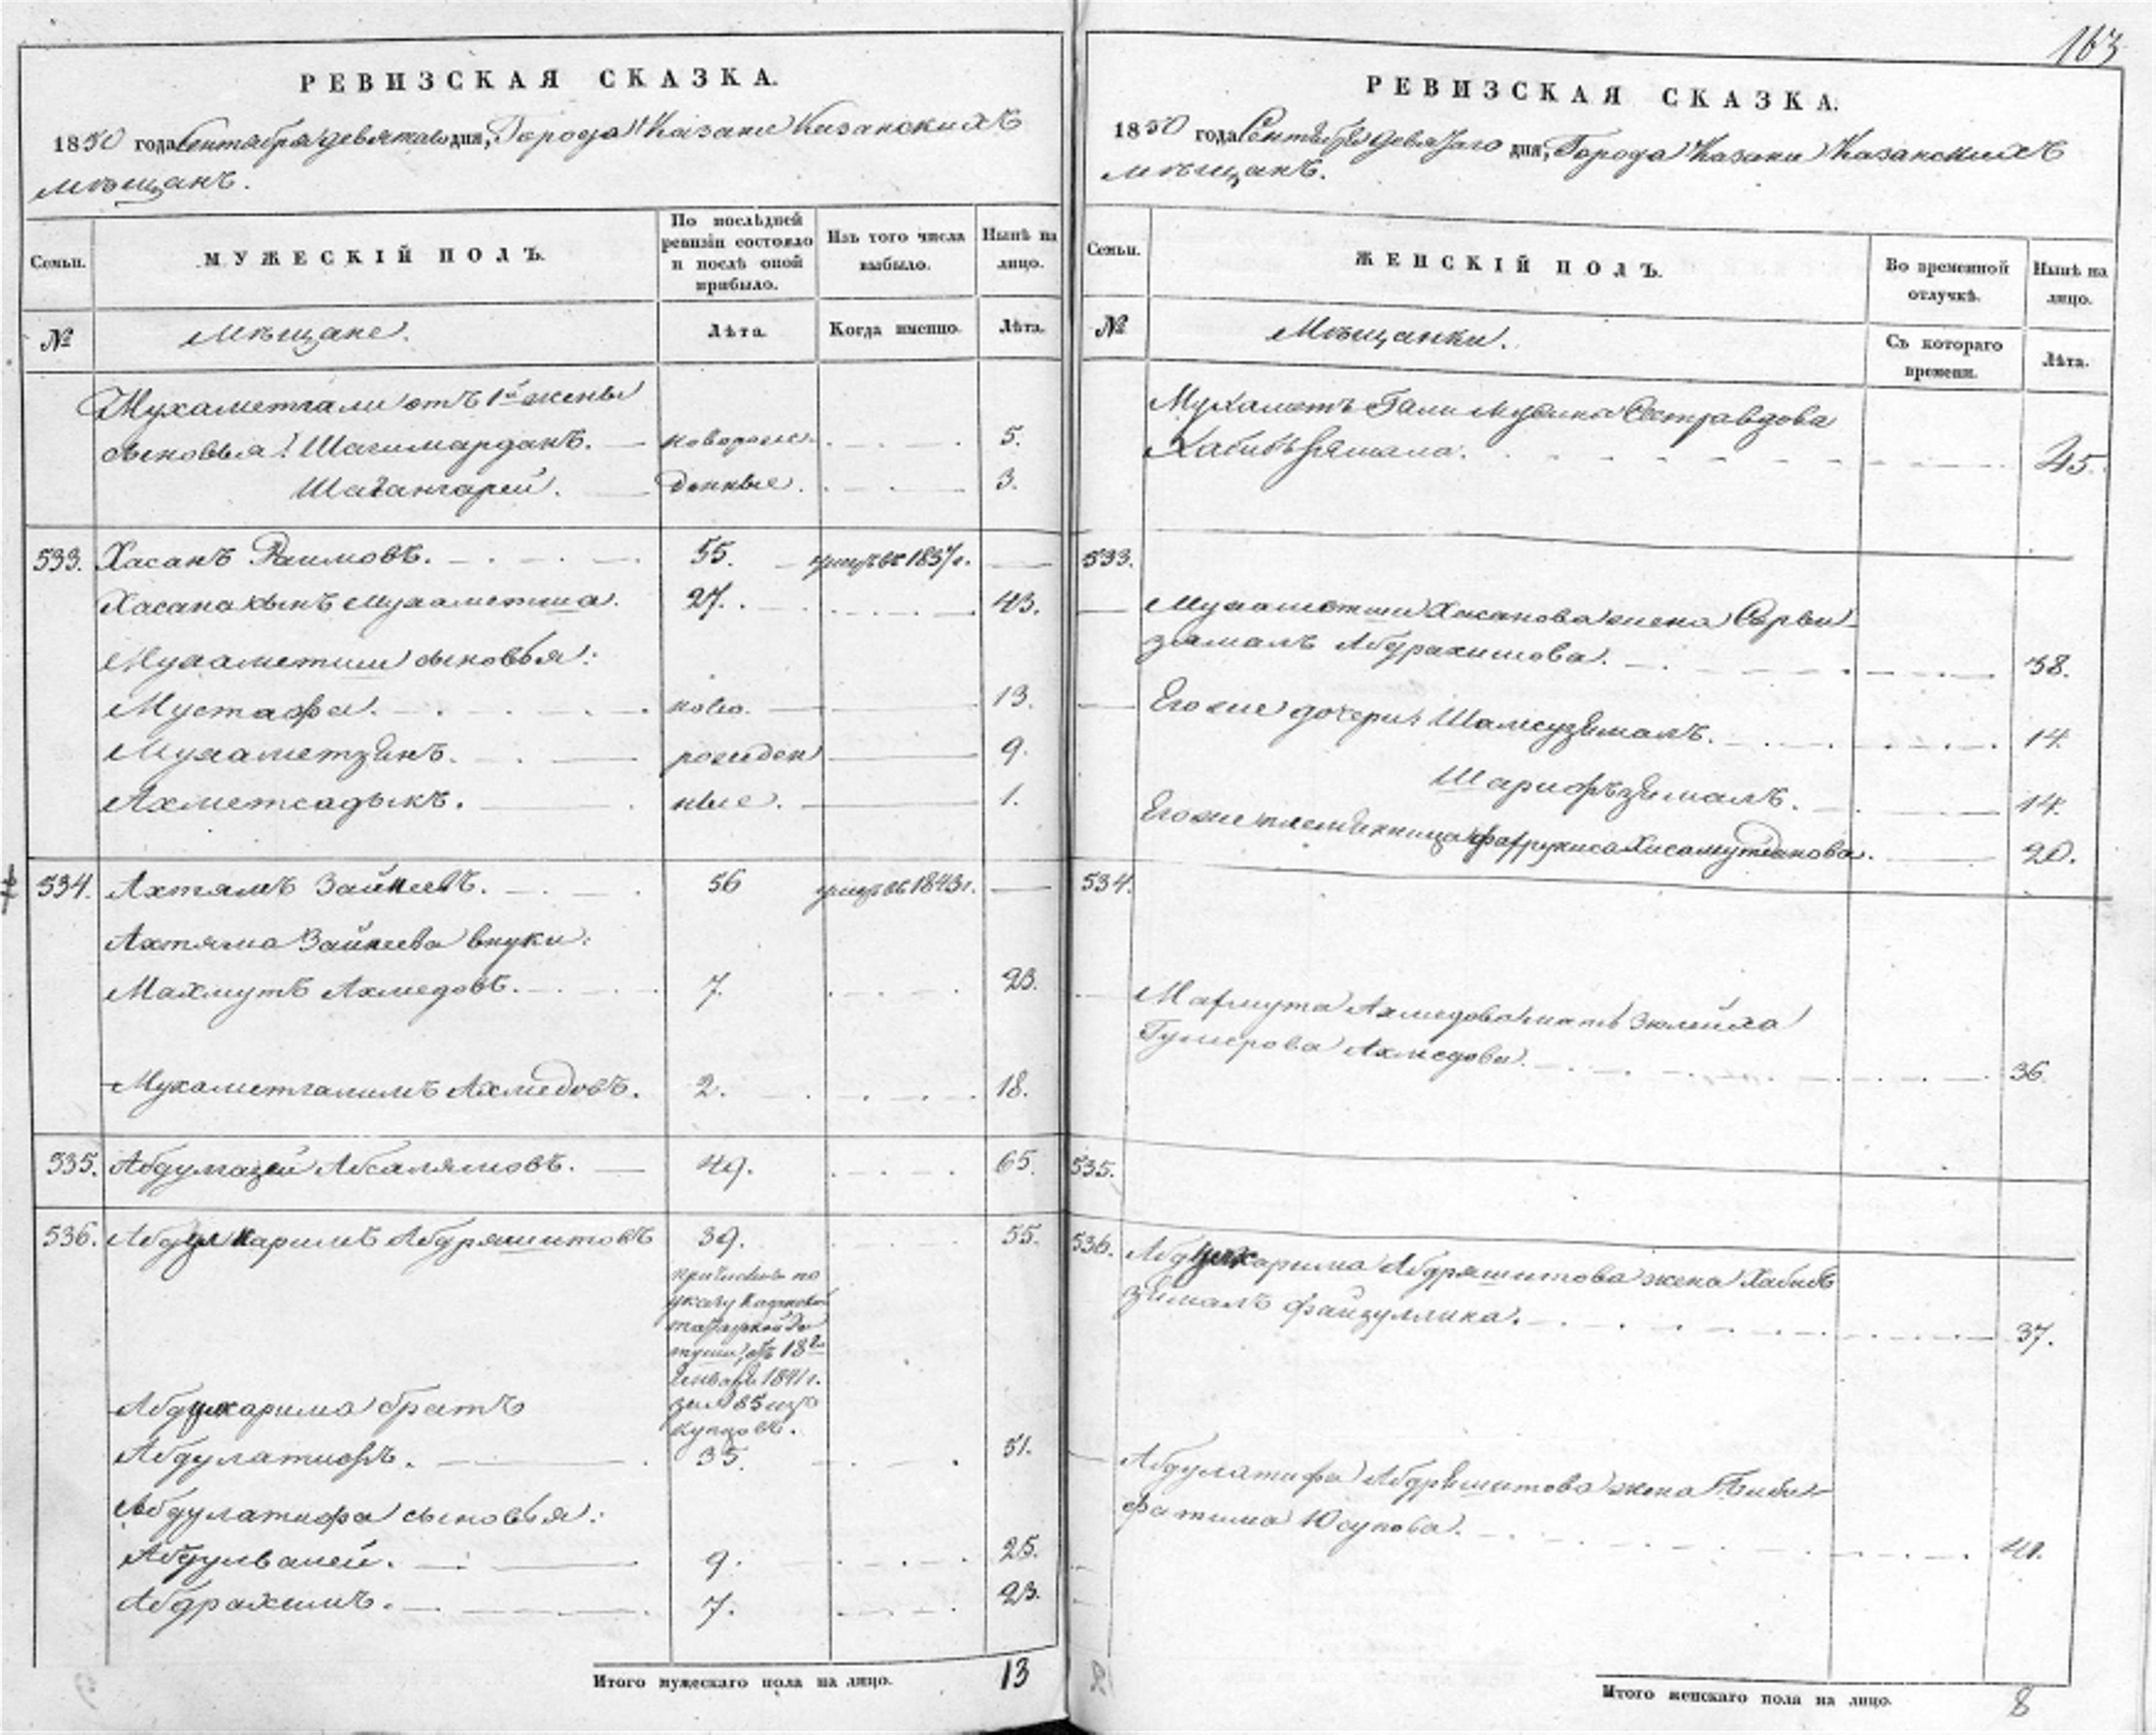 РЕВИЗСКАЯ СКАЗКА.
1850 года Сентября девятаго дня, Города Казани Казанскихъ
мѣщанъ.
Семьи.
МУЖЕСКІЙ ПОЛЪ.
По послѣдней
ревизіи состояло
и послѣ оной
прибыло.
Изъ того числа
выбыло.
Нынѣ на
лицо.
№
Мѣщане.
Лѣта.
Когда именно.
Лѣта.
Мухаметгали отъ 1й жены
сыновья: Шагимарданъ. новорож- 5.
Шагангарей. денные. 3.
533. Хасанъ Раимовъ. 55. умеръ въ 1837 г.
Хасана сынъ Мухаметша. 27. 43.
Мухаметши сыновья:
Мустафа. ново- 13.
Мухаметзянъ. рожден 9.
Ахметсадыкъ. ные. 1.
534. Ахтямъ Зайкеевъ. 56 умеръ въ 1843 г.
Ахтяма Зайкеева внуки:
Махмутъ Ахмедовъ. 7. 23.
Мухаметгалимъ Ахмедовъ. 2. 18.
535. Абдулмазей Абсалямовъ. 49. 65.
536. Абдулкаримъ Абдряшитовъ 39. 55.
причислен по
указу Казанской
татарской Ра
туши отъ 18го
Января 1841 г.
за № 85 изъ
купцовъ.
Абдулкарима братъ
Абдулатифъ. 35. 51.
Абдулатифа сыновья:
Абдулвалей. 9. 25.
Абдрахимъ. 7. 23.
Итого мужескаго пола на лицо. 13
163
РЕВИЗСКАЯ СКАЗКА.
1850 года Сентября девятаго дня, Города Казани Казанскихъ
мѣщанъ.
Семьи.
ЖЕНСКІЙ ПОЛЪ.
Во временной
отлучкѣ.
Нынѣ на
лицо.
№
Мѣщанки.
Съ котораго
времени.
Лѣта.
Мухаметъ Гали Мусина Сестра вдова
45.
533.
Мухаметши Хасанова жена Сярви-
замалъ Абдрахимова. 38.
Его же дочери: Шамсузямалъ. 14.
Шарифъзямалъ. 14.
Его же племянница Фахруниса Хисамутдинова. 20.
534.
Махмута Ахмедова мать Зюлейха
Гумерова Ахмедова. 36.
535.
536. Абдулкарима Абдряшитова жена Хабиб
зямалъ Файзуллина. 37.
Абдулатифа Абдряшитова жена Биби-
фатима Юсупова. 41.
Итого женскаго пола на лицо. 8